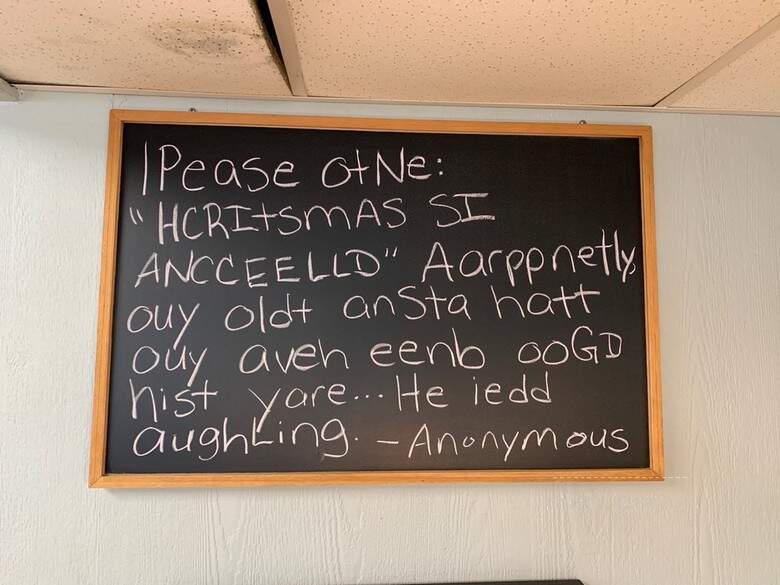 lPease otNe:
"HCRItSmAS SI
ANCCEELLD" Aarppnetly,
ouy oldt anSta hatt
ouy aveh eenb ooGD
hist yare... He iedd
aughLing. - Anonymous